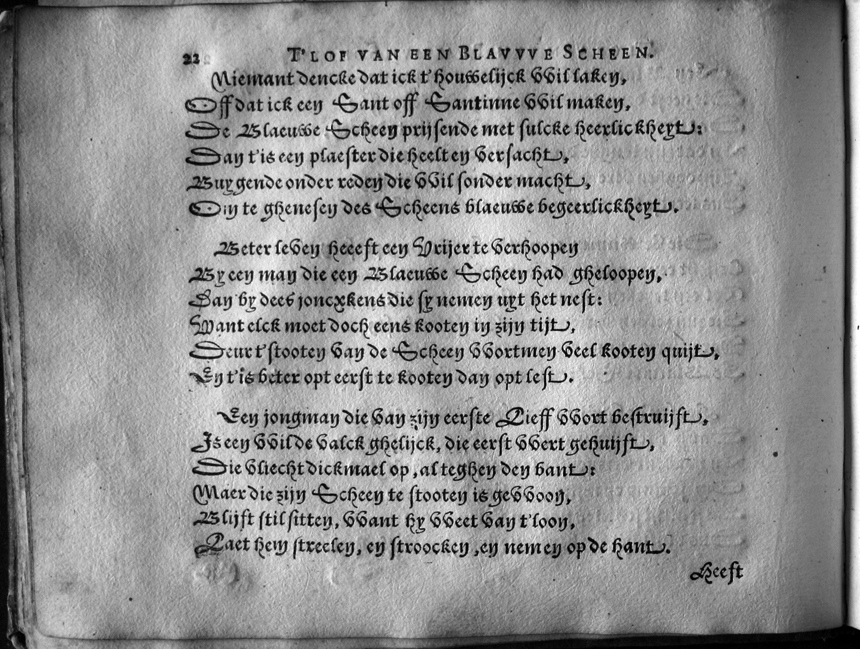 22 T'LOF VAN EEN BLAVVVE SCHEEN.
Niemant dencke dat ick t'houwelijck wil laken,
Off dat ick een Sant off Santinne wil maken,
De Blaeuwe Scheen prijsende met sulcke heerlickheyt:
Dan t'is een plaester die heelt en versacht,
Buygende onder reden die wil sonder macht,
Om te ghenesen des Scheens blaeuwe begeerlickheyt.
Beter leven heeeft een Vrijer te verhoopen
By een man die een Blaeuwe Scheen had gheloopen,
Dan by dees joncxkens die sy nemen uyt het nest:
Want elck moet doch eens kooten in zijn tijt,
Deur t'stooten van de Scheen wortmen veel kooten quijt,
En t'is beter opt eerst te kooten dan opt lest.
Een jongman die van zijn eerste Lieff wort bestruijft,
Is een wilde valck ghelijck, die eerst wert gehuijft,
Die vliecht dickmael op, al teghen den bant:
Maer die zijn Scheen te stooten is gewoon,
Blijft stil sitten, want hy weet van t'loon,
Laet hem streelen, en stroocken, en nemen op de hant.
Heeft